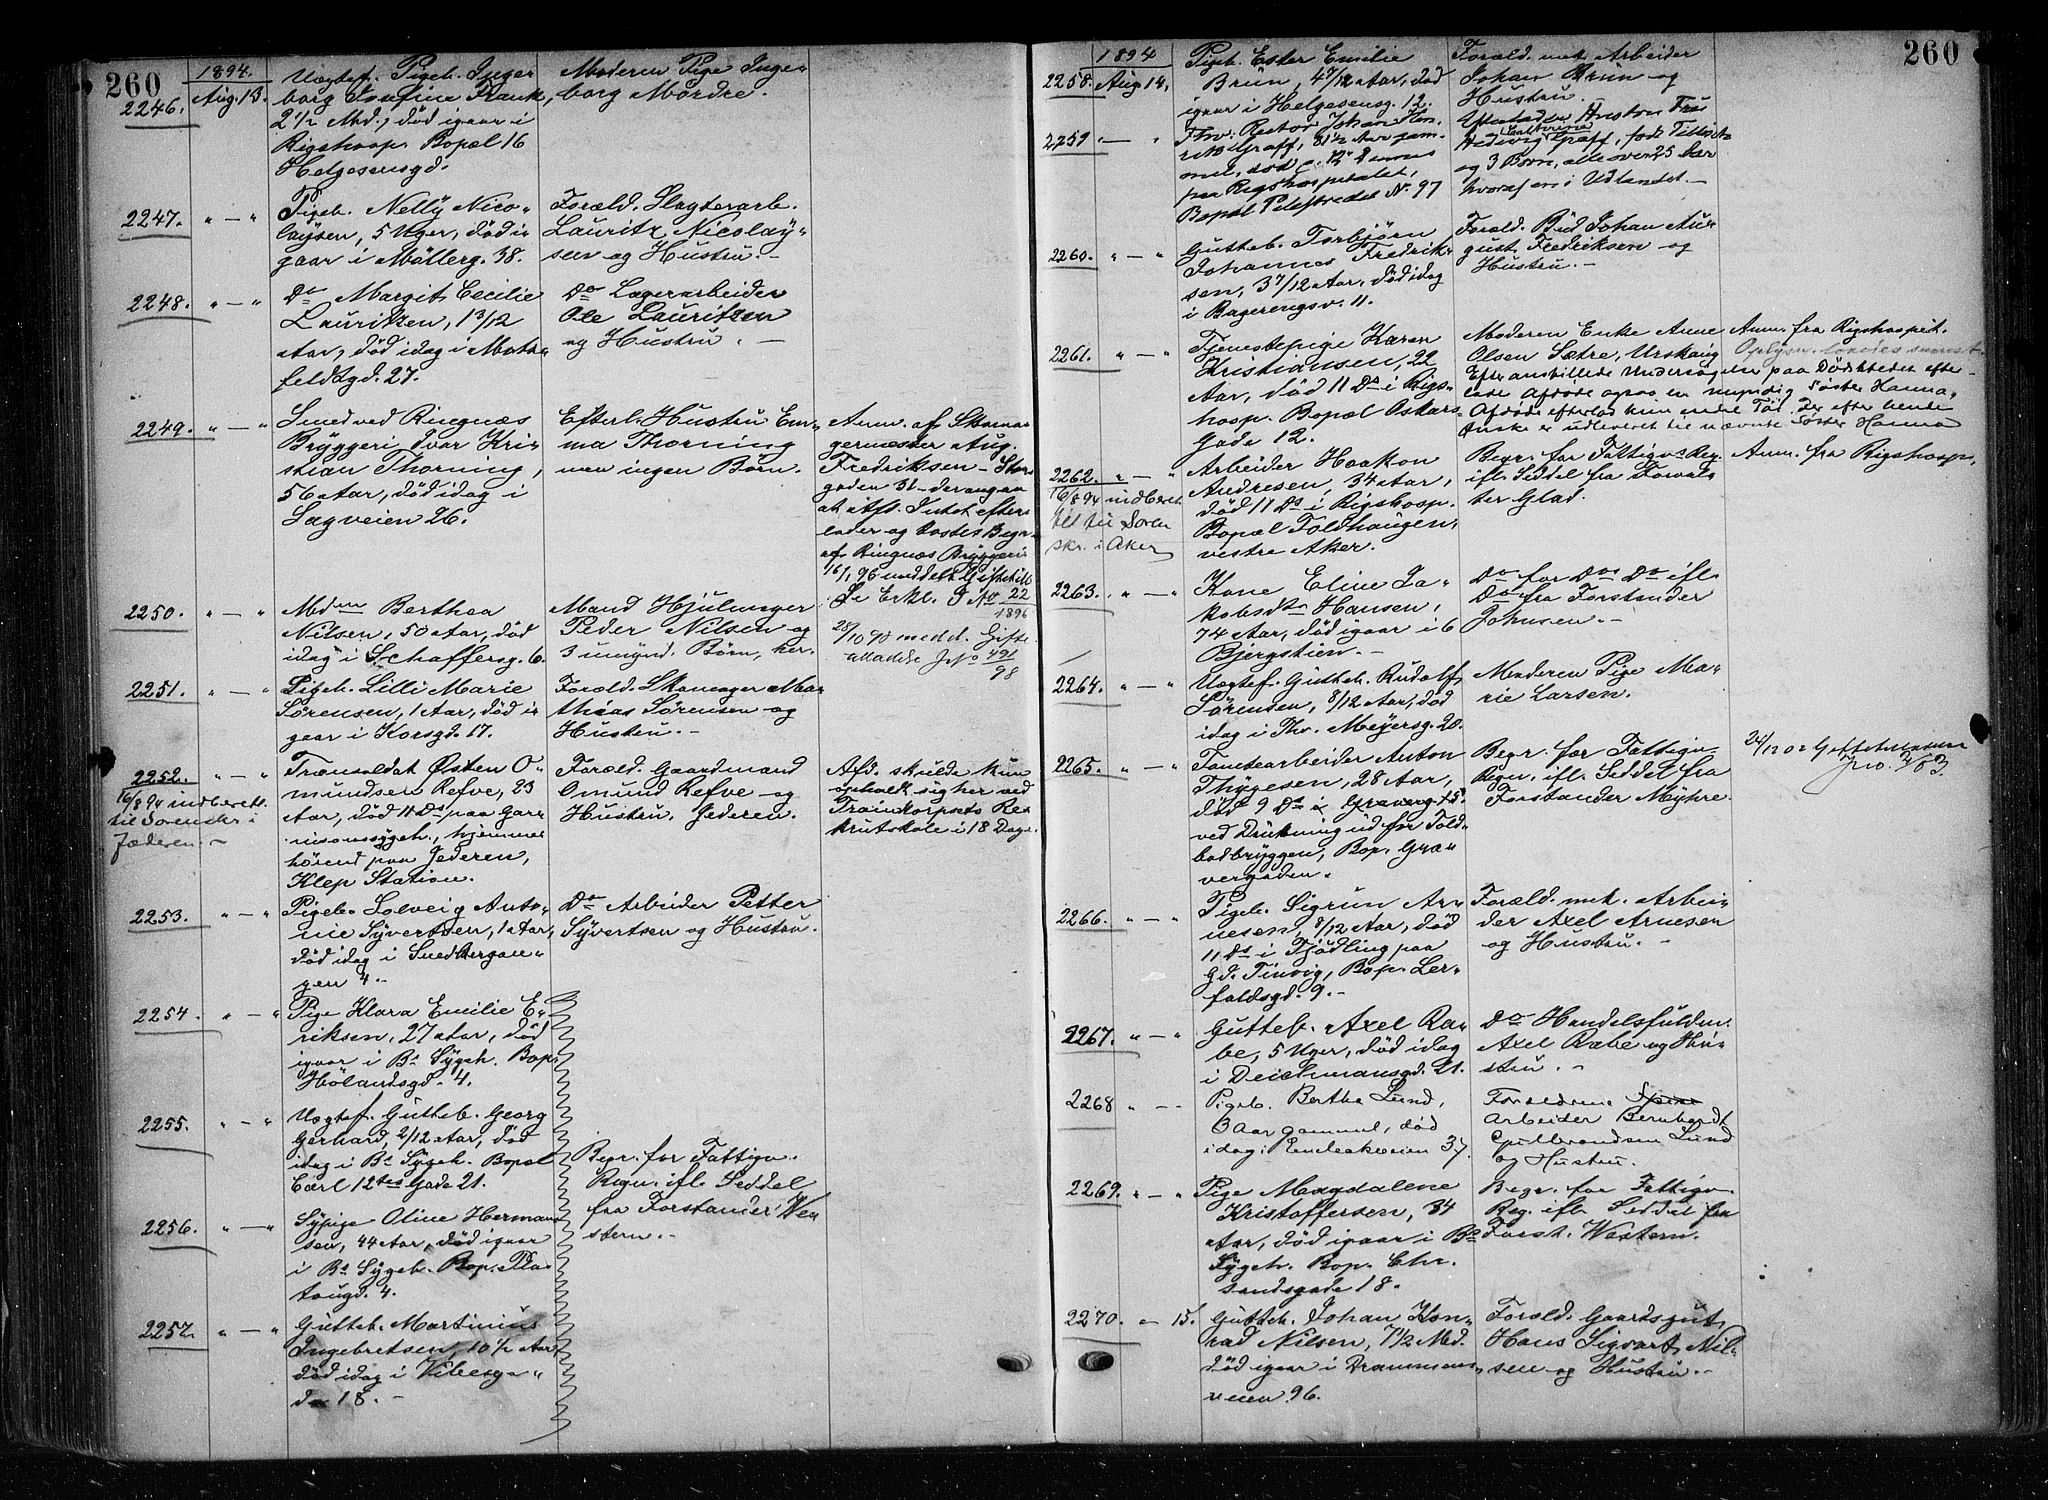 260
1894.
2246.
Aug. 13.
Uægtef. Pigeb. Inger
borg Josefine Frank,
2 1/2 Md., død igaar i
Rigshosp. Bopæl 16
Helgesensgd.
Moderen Pige Inge-
borg Mordre.
2247. " — "
Pigeb. Nelly Nico-
laysen, 5 Uger, død i
gaar i Møllerg. 38.
Foræld. Slagterarb.
Lauritz Nicolay-
sen og Hustru. —
2248. " — "
Do Margit Cecilie
Lauritzen, 1 3/12
Aar, død idag i Motz-
feldtgd. 27.
Do Lagerarbeider
Ole Lauritzen
og Hustru. —
2249. " — "
Smed ved Ringnæs
Bryggeri Ivar Kri-
stian Thorning,
56 Aar, død idag i
Sagveien 26.
Efterl. Hustru Em-
ma Thorning
men ingen Børn.
Anm. af Skoma-
germester Aug.
Fredriksen — Stor
gaden 31 — der angav
at Afd. Intet efter-
lader og kostes Begr.
af Ringnæs Bryggeri
16/1 96 meddelt Gifteatt.
Se Erkl. J No 22
1896
2250. " — "
Mdm Berthea
Nilsen, 50 Aar, død
idag i Schaffersg. 6.
Mand Hjulmager
Peder Nilsen og
3 umynd. Børn, her.
28/10 98 medd. Gifte-
attest JNo 491
98
2251. " — "
Pigeb. Lilli Marie
Sørensen, 1 Aar, død i
gaar i Korsgd. 17.
Foræld. Skomager Ma-
thias Sørensen og
Hustru. —
2252. " — "
16/8 94 indberett.
til Sorenskr i
Jæderen. —
Trænsoldat Østen O-
mundsen Refve, 23
Aar, død 11 Ds paa Gar-
nisonssygeh., hjemme
hørend paa Jederen,
Klep Station.
Foræld. Gaardmand
Omund Refve og
Hustru, Jederen.
Afd. skulde kun
opholdt sig her ved
Trainkorpsets Re-
krutskole i 18 Dage.
2253. " — "
Pigeb. Solveig Anto-
nie Syvertsen, 1 Aar,
død idag i Smedbergan-
gen 4. —
Do Arbeider Petter
Syvertsen og Hustru.
2254. " — "
Pige Klara Emilie E-
riksen, 27 Aar, død
igaar i Bs Sygeh. Bop.
Hølandsgd. 4.
2255. " — "
Uægtef. Gutteb. Georg
Gerhard, 2/12 Aar, død
idag i Bs Sygeh. Bopæl
Carl 12tes Gade 21.
Begr. for Fattigv.
Regn. ifl. Seddel
fra Forstander We-
stern. —
2256. " — "
Sypige Oline Herman
sen, 44 Aar, død igaar
i Bs Sygeh. Bop. Pla-
tougd. 4.
2257. " — "
Gutteb. Martinius
Ingebretsen, 10 1/2 Aar
død idag i Vibesga-
de 18. —
260
1894
2258. Aug. 14.
Pigeb. Ester Emilie
Brün, 4 7/12 Aar, død
igaar i Helgesensg. 12.
Foræld. mek. Arbeider
Johan Brün og
Hustru.
2259 — "
Fhv. Rektor Johan Hen-
rik Graff, 81 1/2 Aar gam-
mel, død d. 12 dennes
paa Rigshospitalet,
Bopæl Pilestrædet No. 97
Efterlader Hustru Fru
Hedevig Graff, født
og 3 Børn, alle over 25 Aar
hvoraf en i Udlandet. —
2260. " — "
Gutteb. Torbjørn
Johannes Fredrik-
sen, 3 7/12 Aar, død idag
i Bagerengsv. 11.
Foræld. Bud Johan Au-
gust Fredriksen og
Hustru. —
2261. " — "
Tjenestepige Karen
Kristiansen, 22
Aar, død 11 Ds i Rigs-
hosp. Bopæl Oskars
Gade 12.
Moderen Enke Anne
Olsen Sætre, Urskoug
Anm. fra Rigshospit.
Oplysn.
Efter anstillede Undersøgelser paa Dødsstedet efter-
lod Afdøde ogsaa en myndig Søster Hanna,
Afdøde efterlod kun endel Tøi. Der efter hendes
Ønske er udleveret til nævnte Søster Hanna
2262. " — "
16/8 94 indberet
til Soren
skr. i Aker
Arbeider Haakon
Andresen, 34 Aar,
død 11 Ds i Rigshosp.
Bopæl Foldhaugen,
vestre Aker.
Begr. for Fattigvs Reg.
ifl. Seddel fra Forvalt
ter Glad.
Anm. fra Rigshosp.
2263. " — "
Kone Eline Ja-
kobsdtr Hansen,
74 Aar, død igaar i 6
Bjergstien. —
Do for Dos Do ifl.
Do fra Forstander
Johnsen. —
2264. " — "
Uægtef. Gutteb. Rudolf
Sørensen, 8/12 Aar, død
idag i Thv. Meyersg. 20.
Moderen Pige Ma-
rie Larsen.
2265. " — "
Tomtearbeider Anton
Thygesen, 28 Aar,
død 9 Ds i Græverg. 15
ved Drukning ud for Told-
bodbryggen, Bop. Græ-
vergaden.
Begr. for Fattigv.
Regn. ifl. Seddel fra
Forstander Myhre.
24/12 02 Gifteattest
Jno. 783
2266. " — "
Pigeb. Sigrun Ar-
nesen, 8/12 Aar, død
11 Ds i Tjødling paa
Gd. Tinvig, Bop. Ler-
faldsgd. 9. —
Foræld. mek. Arbei-
der Axel Arnesen
og Hustru. —
2267. " — "
Gutteb. Axel Ra-
be, 5 Uger, død idag
i Deichmansgd. 21.
Do Handelsfuldm.
Axel Rabe og Hu-
stru. —
2268 " — "
Pigeb. Berthe Lund,
3 Aar gammel, død
idag i Enebakveien 37.
Forældrene
Arbeider Bernhardt
Gulbrandsen Lund
og Hustru.
2269. " — "
Pige Magdalene
Kristoffersen, 34
Aar, død igaar i Bs
Sygeh. Bop. Chr.
sandsgade 18.
Begr. for Fattigv.
Reg. ifl. Seddel fra
Forst. Western.
2270. " — 15.
Gutteb. Johan Kon-
rad Nilsen, 7 1/2 Md.
død igaar i Drammens-
veien 96.
Foræld. Gaardsgut
Hans Sigvart Nil-
sen og Hustru. —